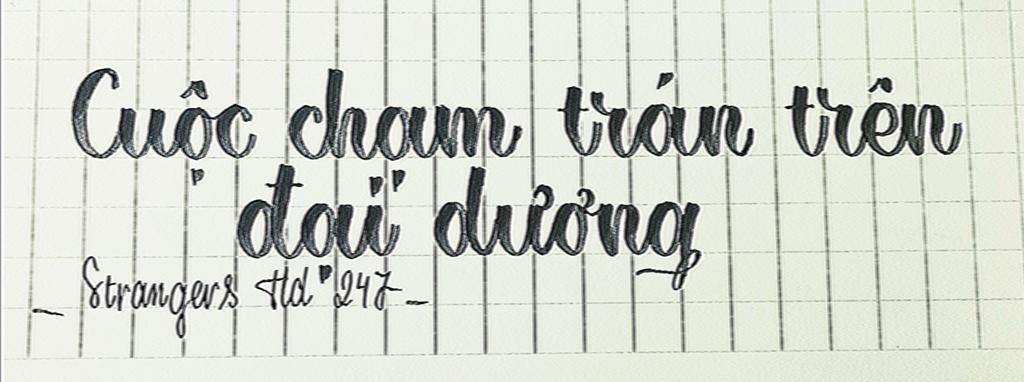 Cuộc chạm trán trên
đại dương
_ Strangers Hd 247 _